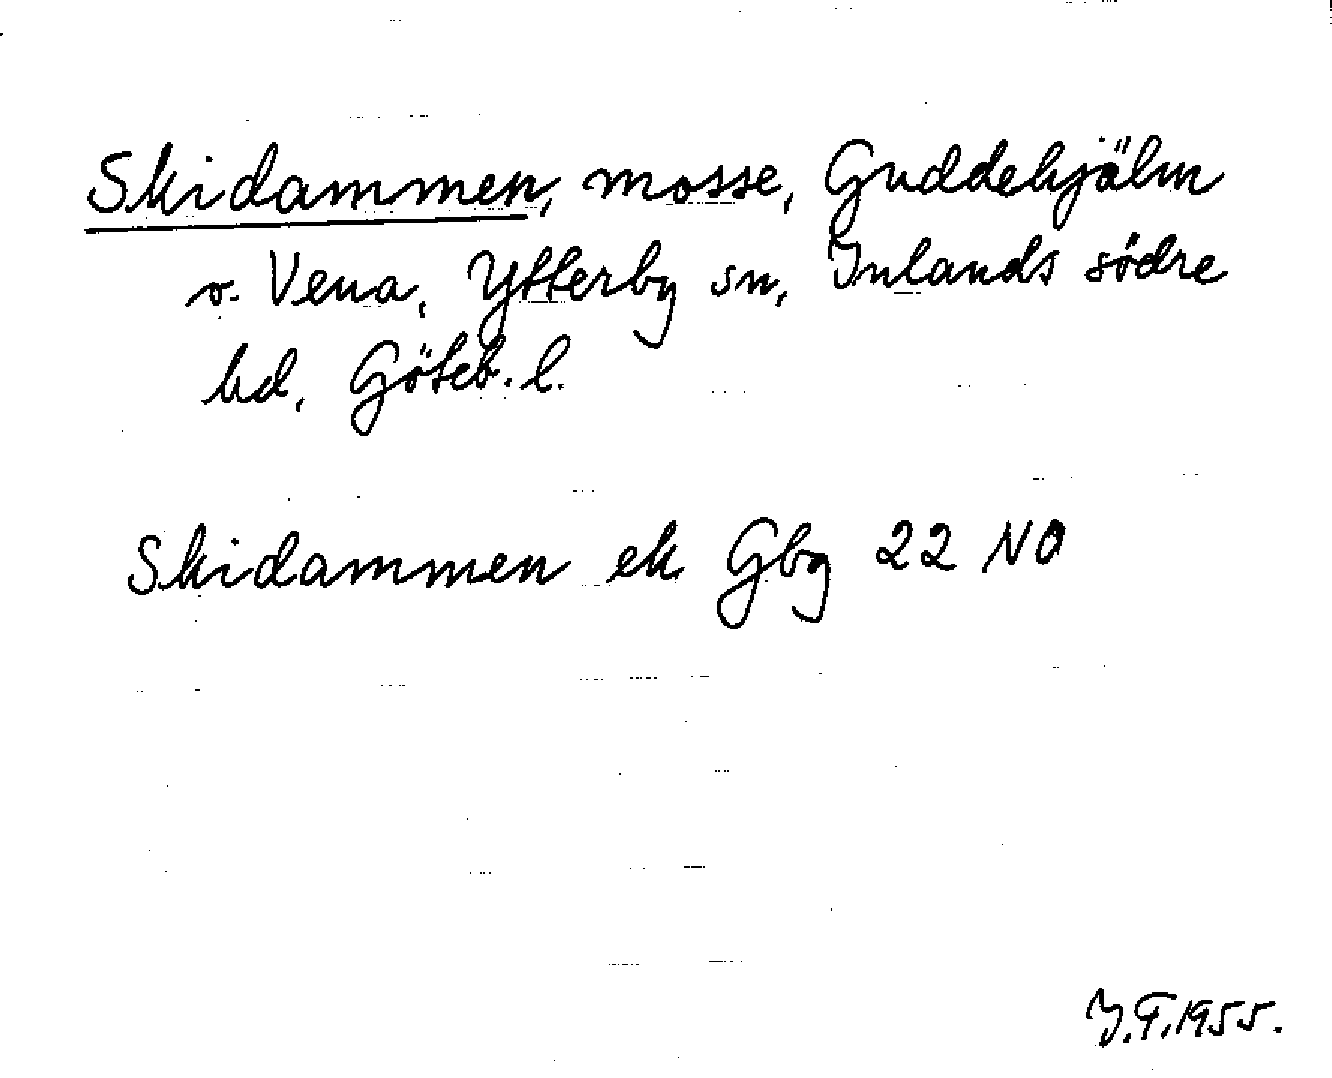 Skidammen, mosse, Guddehjälm
o. Vena, Ytterby sn, Inlands södre
hd, Göteb. l.
Skidammen ek Gbg 22 NO
J.T.1955.